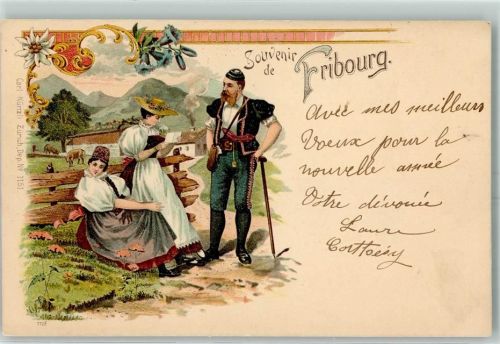 Souvenir
de
Fribourg.
Avec mes meilleurs
Voeux pour la
nouvelle année
Votre dévouée
Laure
Carl Künzli, Zürich, Dep. Nº 1151